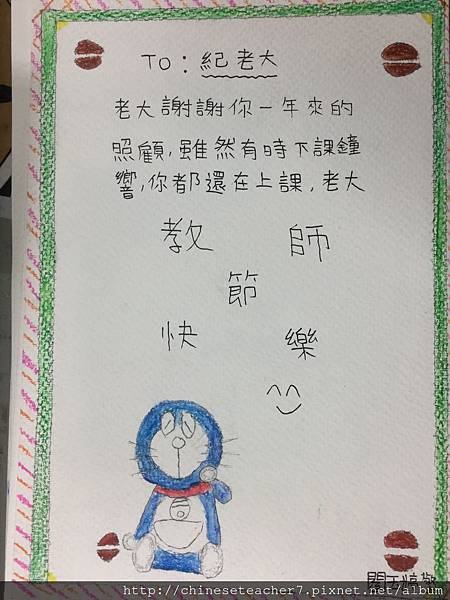 TO：紀老大
老大謝謝你一年來的
照顧,雖然有時下課鐘
響,你都還在上課,老大
教師
節
快樂
http://chineseteacher7.pixnet.net/album